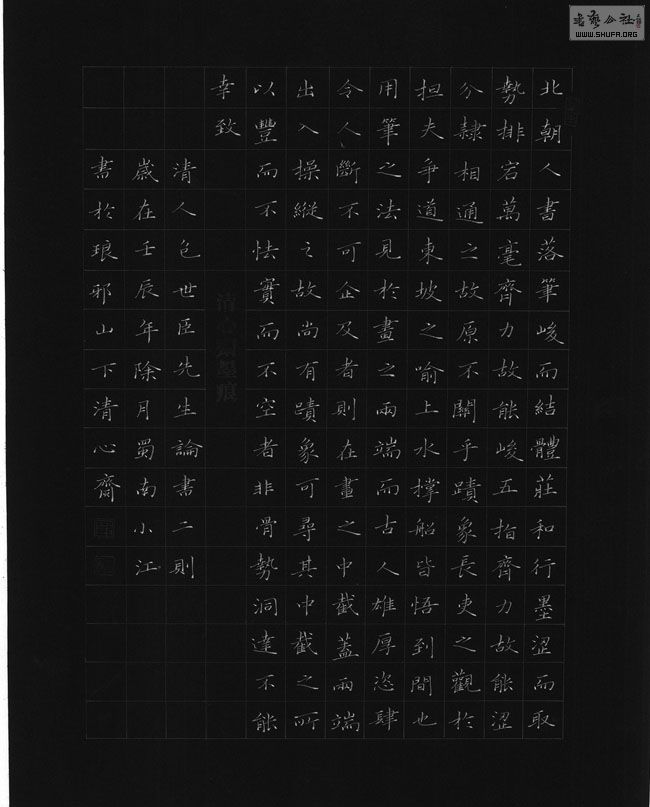 北朝人書落筆峻而結體莊和行墨澀而取
勢排宕萬毫齊力故能峻五指齊力故能澀
分隸相通之故原不關乎蹟象長史之觀於
担夫爭道東坡之喻上水撐船皆悟到間也
用筆之法見於畫之兩端而古人雄厚恣肆
令人斷不可企及者則在畫之中截蓋兩端
出入操縱之故尚有蹟象可尋其中截之所
以豐而不怯實而不空者非骨勢洞達不能
幸致
清心齋墨痕
清人包世臣先生論書二則
歲在壬辰年除月蜀南小江
書於琅邪山下清心齋
書藝公社
WWW.SHUFA.ORG